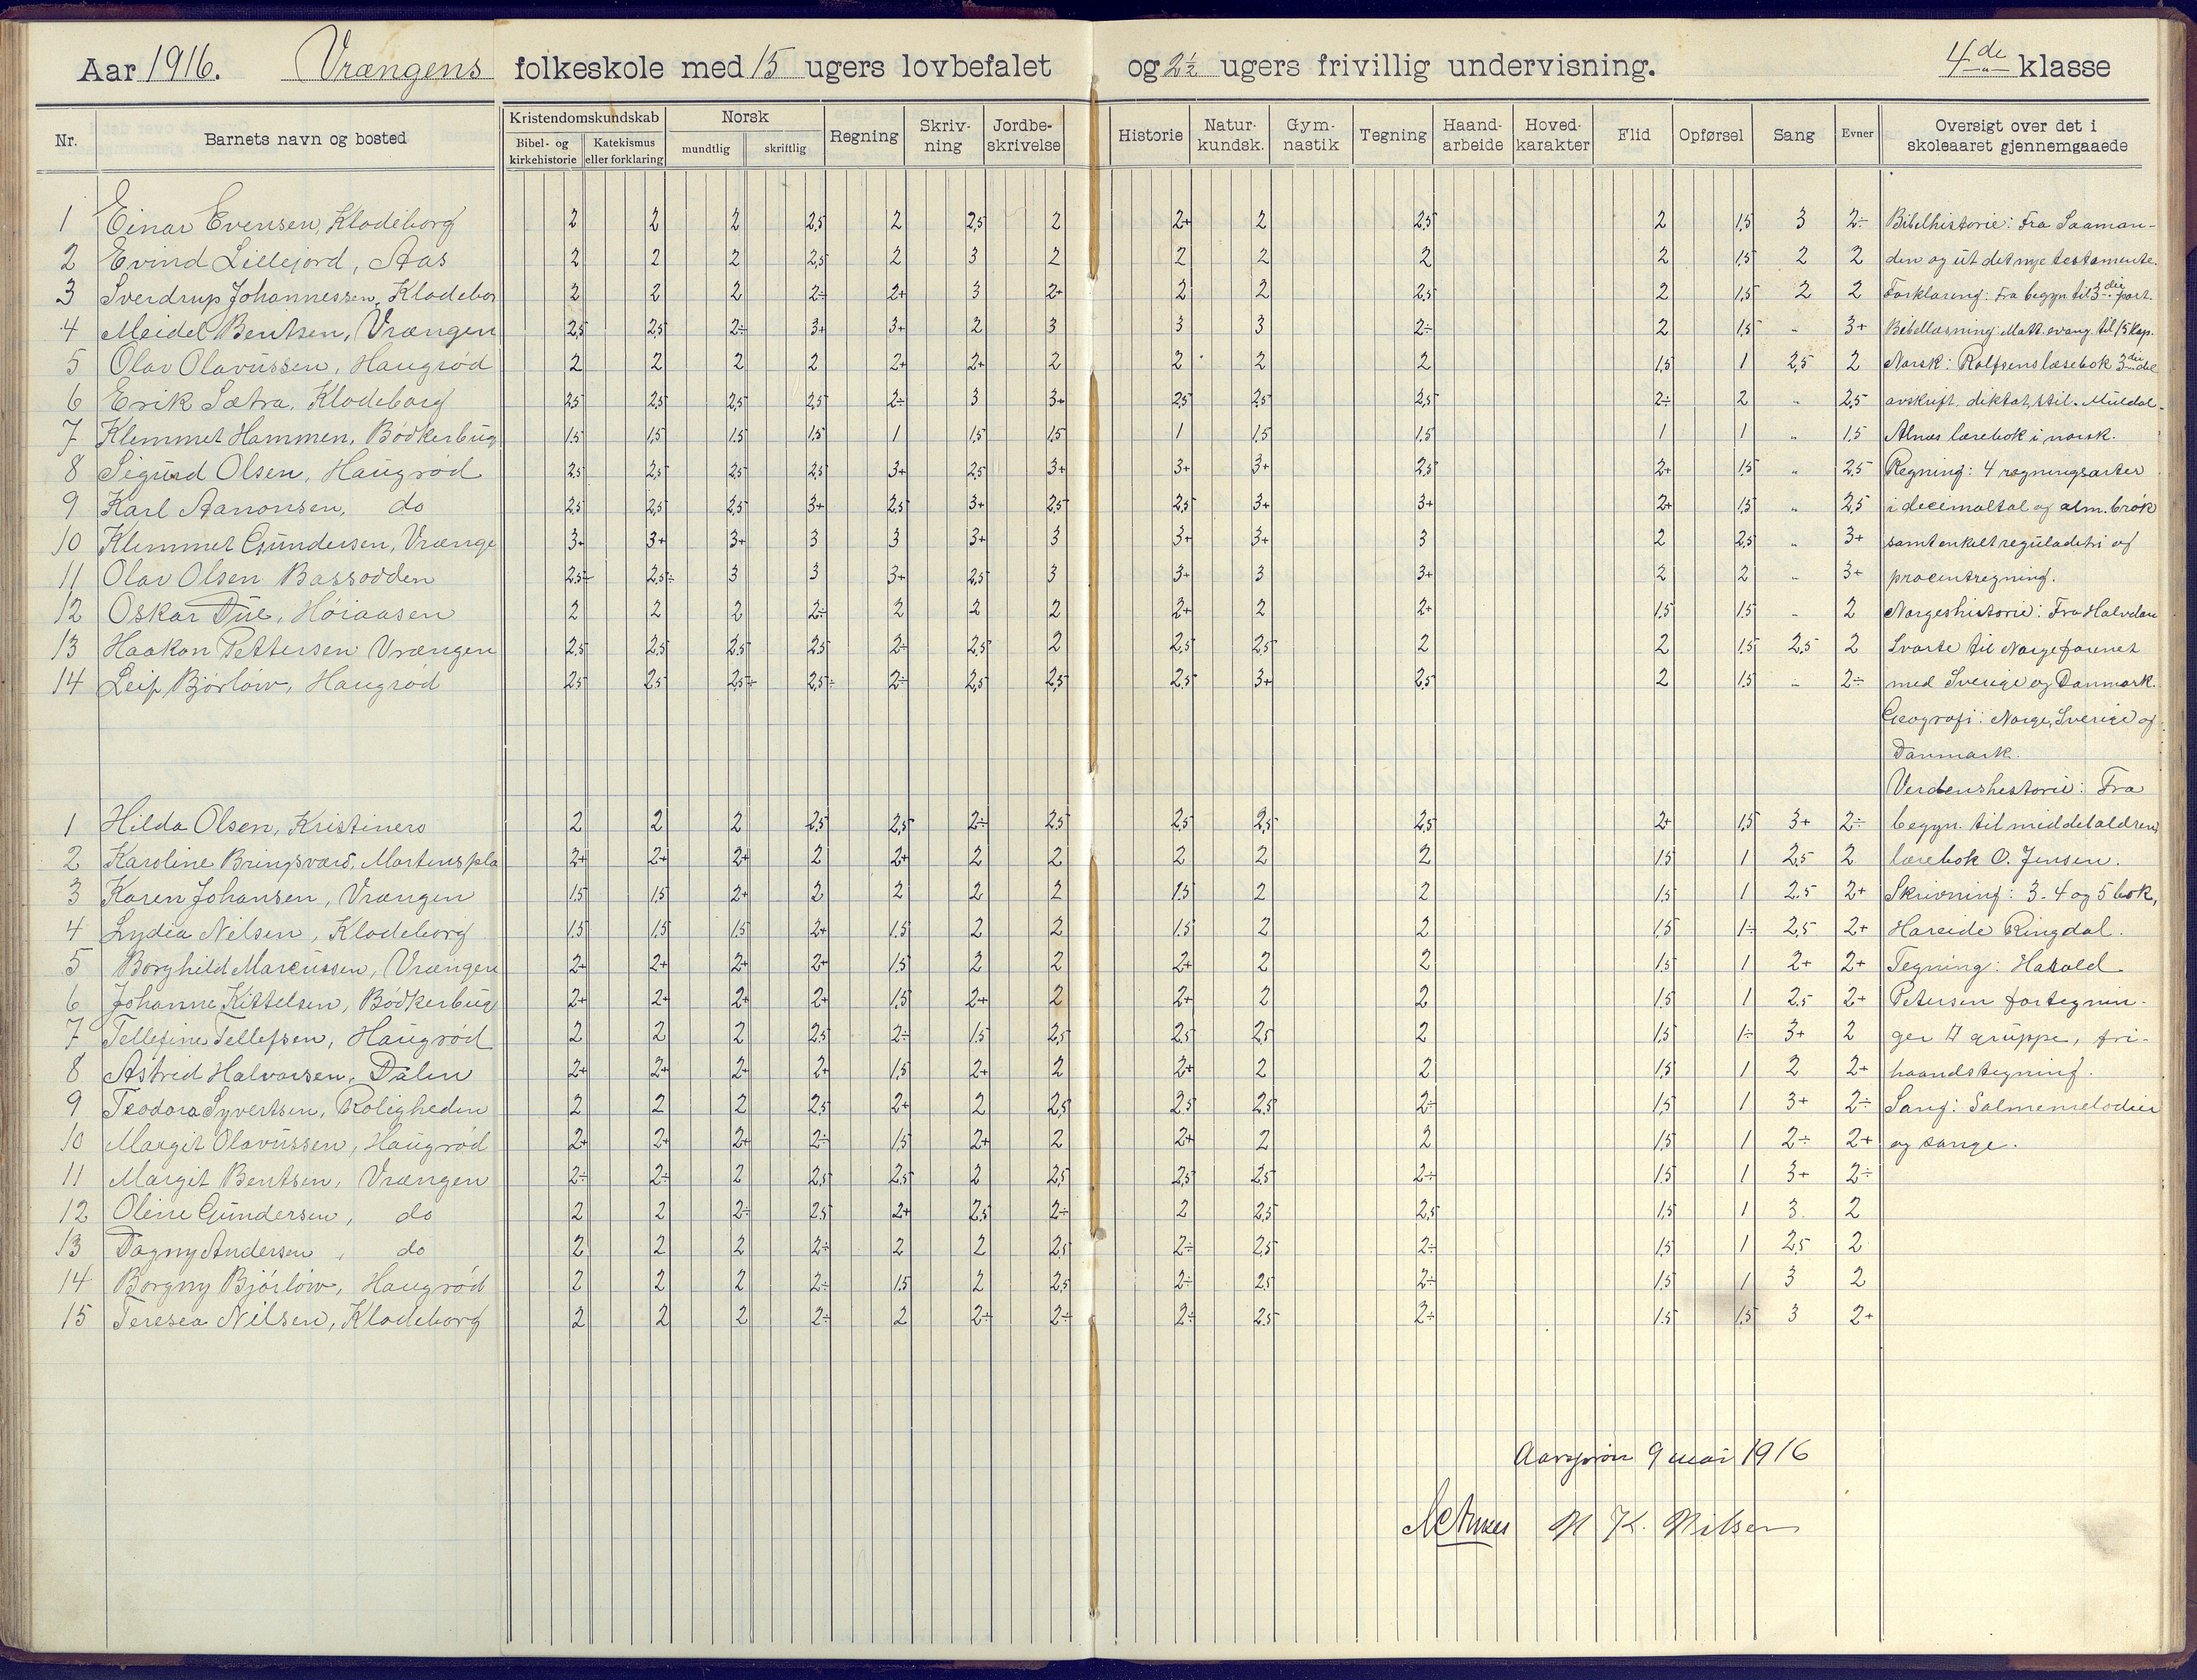 Aar 1916. Vrængens folkeskole med 15 ugers lovbefalet og 2½ ugers frivillig undervisning. 4de klasse
Nr. Barnets navn og bosted Kristendomskundskab Norsk Regning Skriv-ning Jordbe-skrivelse Historie Natur-kundsk. Gym-nastik Tegning Haand-arbeide Hoved-karakter Flid Opførsel Sang Evner Oversigt over det i skoleaaret gjennemgaaede
Bibel- og kirkehistorie Katekismus eller forklaring mundtlig skriftlig
1 Einar Evensen, Klodeborg 2 2 2 2,5 2 2,5 2 2+ 2 2,5 2 1,5 3 2÷ Bibelhistorie: Fra Saaman-
2 Evind Lillejord, Aas 2 2 2 2,5 2 3 2 2 2 2 2 1,5 2 2 den og ut det nye testamente.
3 Sverdrup Johannessen, Klodebor 2 2 2 2÷ 2+ 3 2+ 2 2 2,5 2 1,5 2 2 Forklaring: Fra begyn til 3die part.
4 Meidel Bentsen, Vrængen 2,5 2,5 2÷ 3+ 3+ 2 3 3 3 2÷ 2 1,5 " 3+ Bibellæsning: Matt. evang. til 15 kap.
5 Olav Olavussen, Haugrød 2 2 2 2 2+ 2+ 2 2 2 2 1,5 1 2,5 2 Norsk: Rolfsens læsebok 3die del
6 Erik Sætra, Klodeborg 2,5 2,5 2,5 2,5 2÷ 3 3+ 2,5 2,5 2,5 2÷ 2 " 2,5 avskrift, diktat, stil.
7 Klemmet Hammen, Bödkerbug 1,5 1,5 1,5 1,5 1 1,5 1,5 1 1,5 1,5 1 1 " 1,5 Alnæs lærebok i norsk.
8 Sigurd Olsen, Haugrød 2,5 2,5 2,5 2,5 3+ 2,5 3+ 3+ 3+ 2,5 2+ 1,5 " 2,5 Regning: 4 regningsarter
9 Karl Aanonsen, do 2,5 2,5 2,5 3+ 2,5 3+ 2,5 2,5 3+ 3+ 2+ 1,5 " 2,5 i decimaltal og alm. brök
10 Klemmet Gundersen, Vrænge 3+ 3+ 3+ 3 3 3+ 3 3+ 3+ 3 2 2,5 " 3+ samt enkelt reguladetri og
11 Olav Olsen Bassodden 2,5÷ 2,5÷ 3 3 3+ 2,5 3 3+ 3 3+ 2 2 " 3+ procentregning.
12 Oskar Due, Höiaasen 2 2 2 2÷ 2 2 2 2+ 2 2+ 1,5 1,5 " 2 Norgeshistorie: Fra Halvdan
13 Haakon Pettersen Vrængen 2,5 2,5 2,5 2,5 2÷ 2,5 2 2,5 2,5 2 2 1,5 2,5 2 Svarte til Norge forenet
14 Leif Björlöw, Haugrød 2,5 2,5 2,5÷ 2,5÷ 2÷ 2,5 2,5 2,5 3+ 2,5 2 1,5 " 2÷ med Sverige og Danmark.
Geografi: Norge, Sverige og
Danmark.
Verdenshistorie: Fra
1 Hilda Olsen, Kristinero 2 2 2 2,5 2,5 2÷ 2,5 2,5 2,5 2,5 2+ 1,5 3+ 2÷ begyn. til middelaldren,
2 Karoline Bringsværd, Martenspla 2+ 2+ 2+ 2 2+ 2 2 2 2 2 1,5 1 2,5 2 lærebok O. Jensen.
3 Karen Johansen, Vrængen 1,5 1,5 2+ 2 2 2 2 1,5 2 2 1,5 1 2,5 2+ Skrivning: 3-4 og 5 bok,
4 Lydia Nilsen, Klodeborg 1,5 1,5 1,5 2+ 1,5 2 2 1,5 2 2 1,5 1÷ 2,5 2+ Hareide Ringdal.
5 Borghild Marcussen, Vrængen 2+ 2+ 2+ 2+ 1,5 2 2 2+ 2 2 1,5 1 2+ 2+ Tegning: Harald
6 Johanne Kittelsen, Bödkerbug 2+ 2+ 2+ 2+ 1,5 2+ 2 2+ 2 2 1,5 1 2,5 2+ Petersen fortegnin-
7 Tellefine Tellefsen, Haugrød 2 2 2 2,5 2÷ 1,5 2,5 2,5 2,5 2 1,5 1÷ 3+ 2 ger gruppe, fri-
8 Astrid Halvorsen, Dalen 2+ 2+ 2+ 2+ 1,5 2+ 2 2+ 2 2 1,5 1 2 2+ haandstegning.
9 Teodora Syvertsen, Roligheden 2 2 2 2,5 2+ 2 2,5 2,5 2,5 2÷ 1,5 1 3+ 2÷ Sang: Salmemelodier
10 Margit Olavussen, Haugrød 2+ 2+ 2+ 2÷ 1,5 2+ 2 2+ 2 2 1,5 1 2÷ 2+ og sange.
11 Margit Bentsen, Vrængen 2÷ 2÷ 2 2,5 2,5 2 2,5 2,5 2,5 2÷ 1,5 1 3+ 2÷
12 Oline Gundersen, do 2 2 2÷ 2,5 2+ 2,5 2÷ 2 2,5 2,5 1,5 1 3 2
13 Dagny Andersen, do 2 2 2 2÷ 2 2 2,5 2÷ 2,5 2÷ 1,5 1 2,5 2
14 Borgny Björlöw, Haugrød 2 2 2 2÷ 1,5 2 2,5 2÷ 2,5 2÷ 1,5 1 3 2
15 Teresea Nilsen, Klodeborg 2 2 2 2÷ 2 2÷ 2÷ 2÷ 2,5 2÷ 1,5 1,5 3 2+
Aarsprøve 9 mai 1916
N K. Nilsen